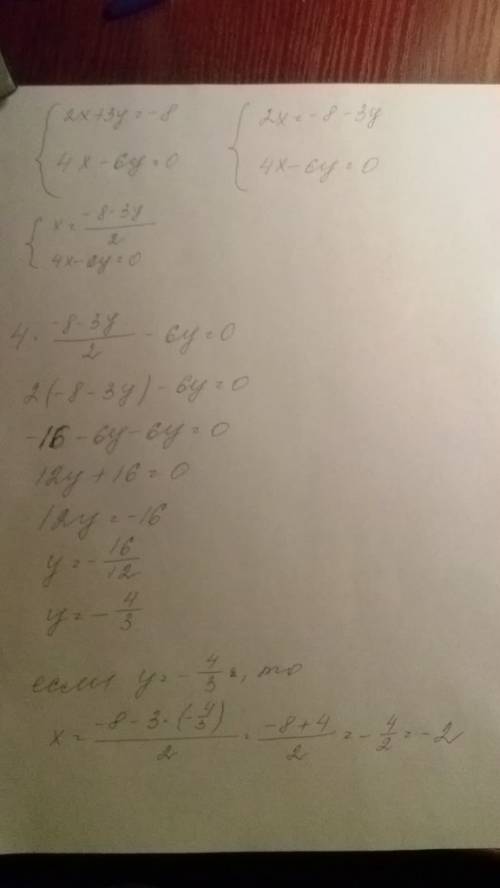 2x+3y=-8   2x=-8-3y
4x-6y=0   4x-6y=0
x=(-8-3y)/2
4x-6y=0
4·(-8-3y)/2-6y=0
2(-8-3y)-6y=0
-16-6y-6y=0
12y+16=0
12y=-16
y=-16/12
y=-4/3
если y=-4/3, то
x=(-8-3·(-4/3))/2=(-8+4)/2=-4/2=-2